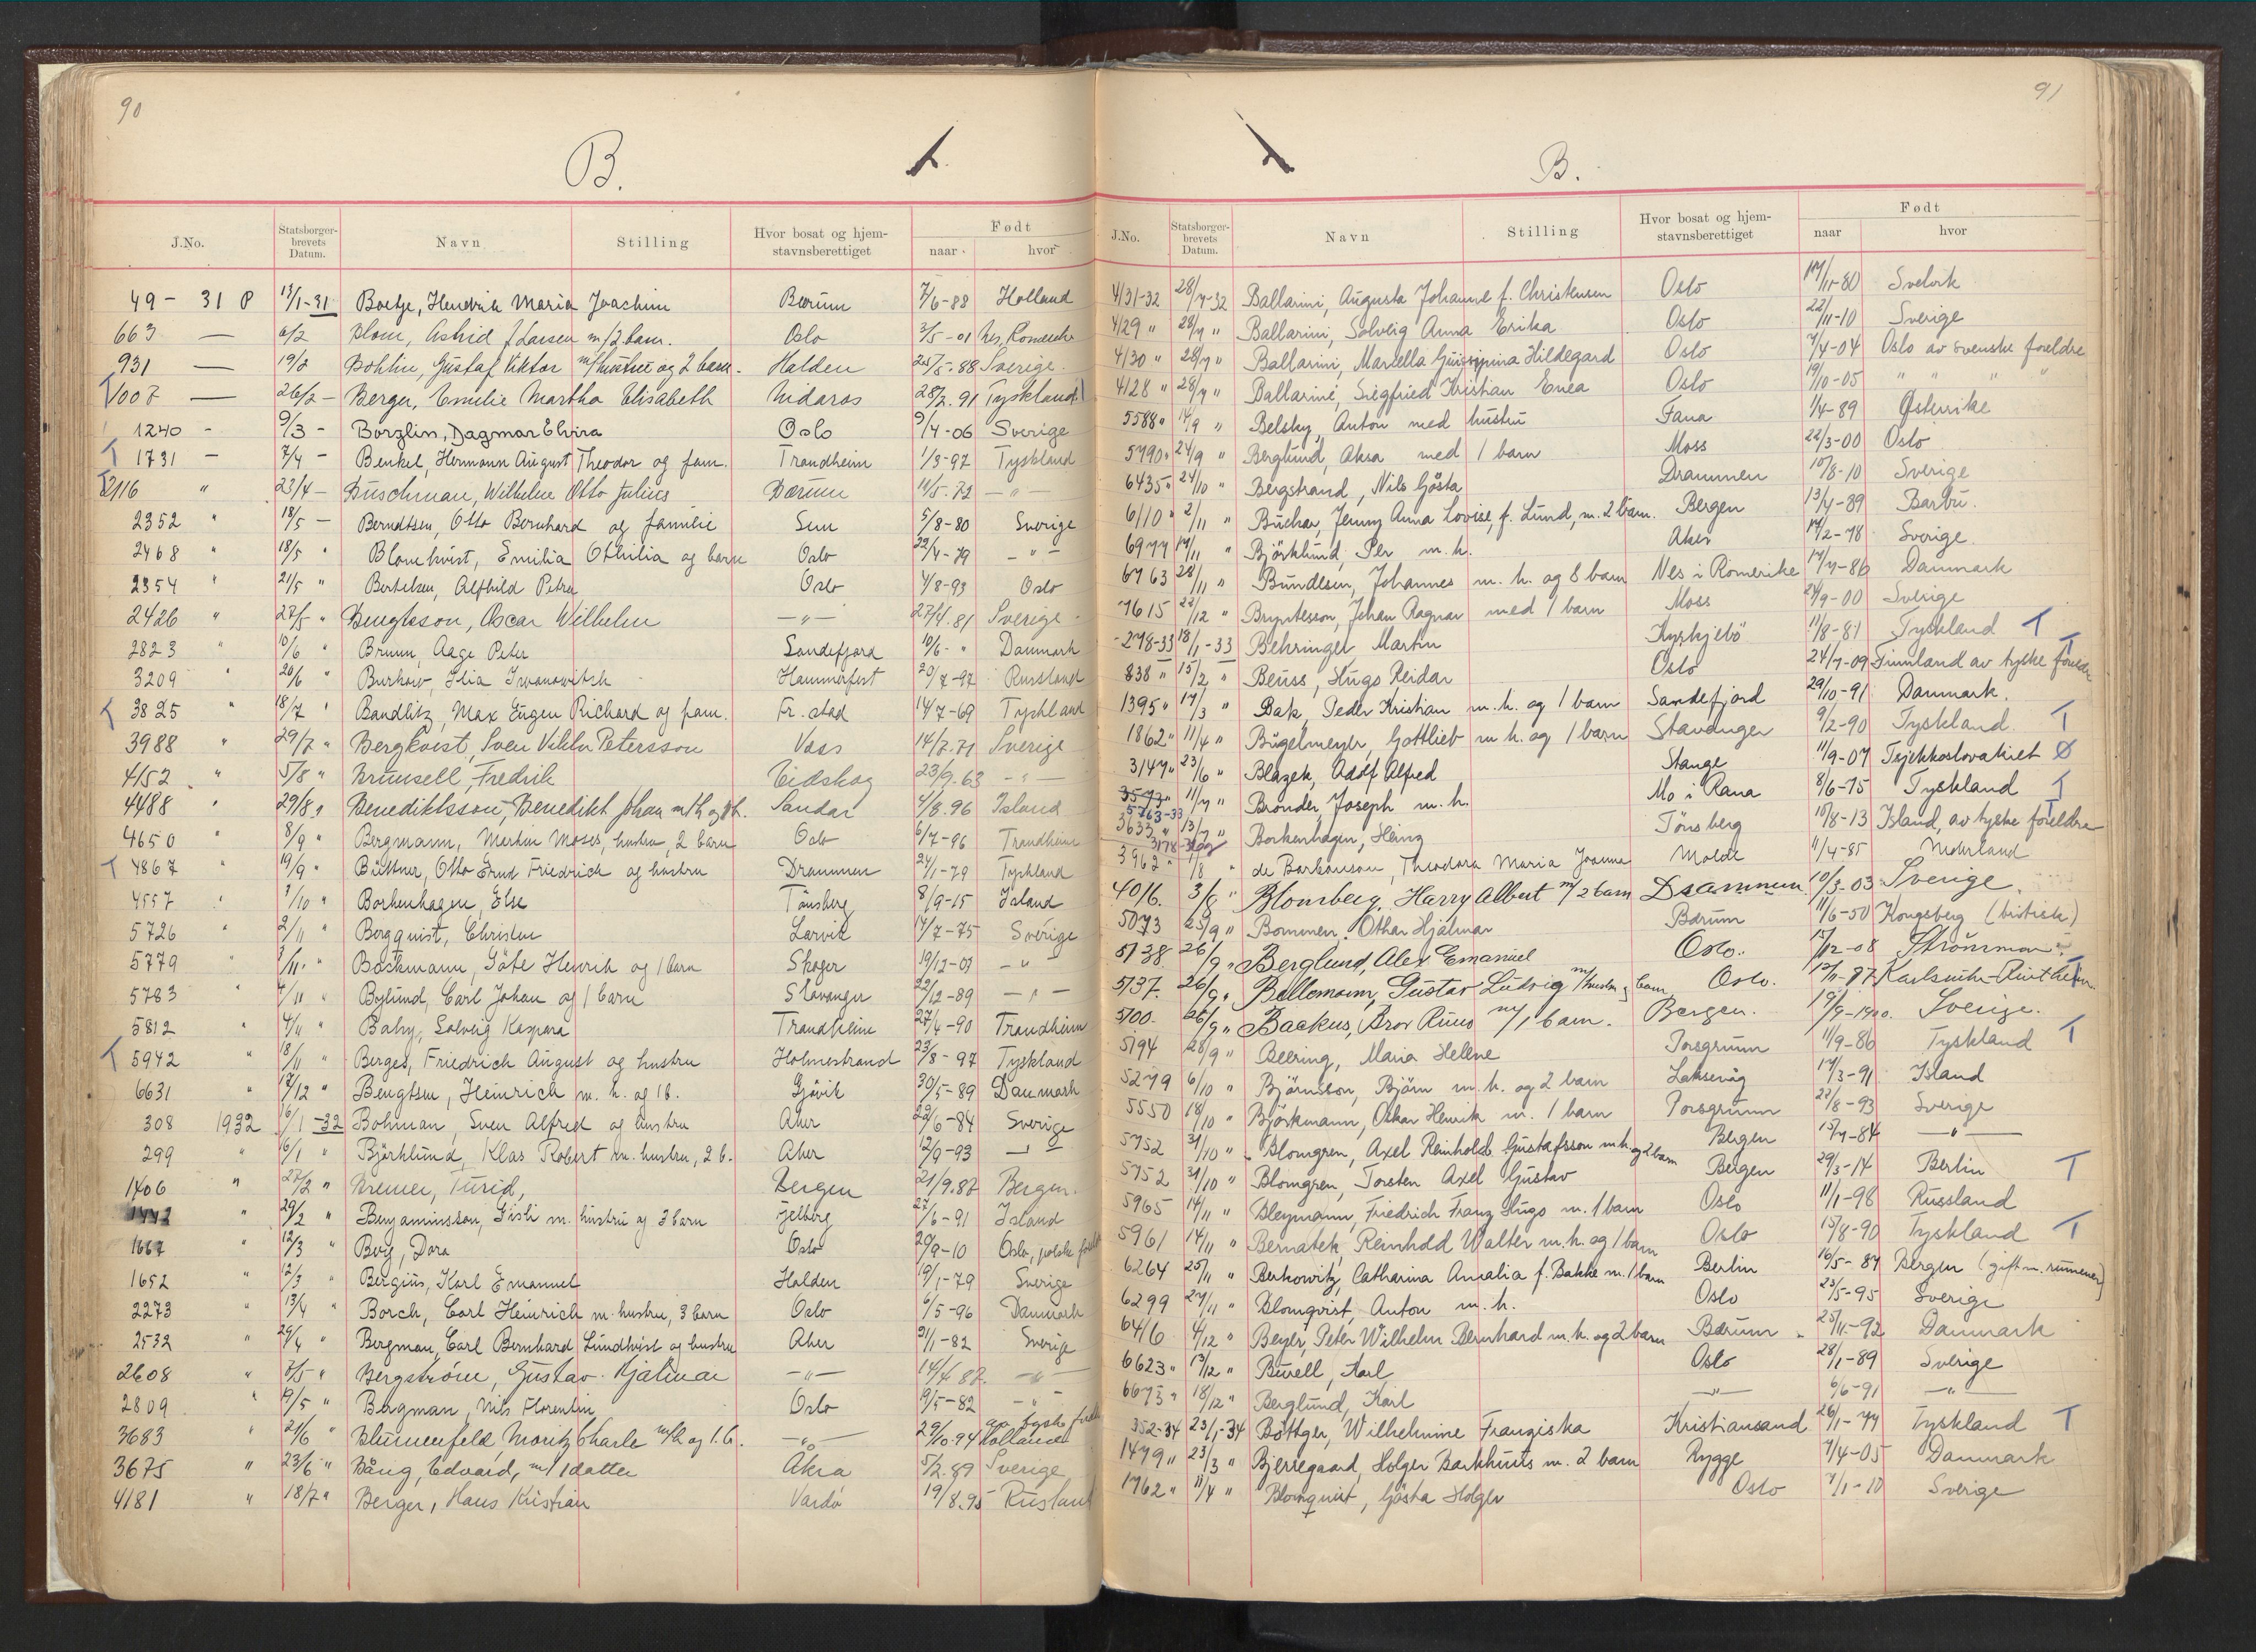 90
B.
J.No. Statsborger-brevets Datum. Navn Stilling Hvor bosat og hjem-stavnsberettiget Født naar hvor
49 - 31 P 13/1-31 Boetje, Hendrik Maria Joachim Bærum 7/6-88 Holland
663 — 6/2 Blom, Astrid f. Larsen m/2 barn. Oslo 3/5-01 Nes, Romerike
931 — 19/2 Bohlin, Gustaf Viktor m/hustru og 2 barn. Halden 25/5-88 Sverige
T 1007 — 26/2 - Berger, Emilie Martha Elisabeth Nidaros 28/2.91 Tyskland
1240 - 9/3 - Borzlin, Dagmar Elvira Oslo 9/4-06 Sverige
T 1731 - 7/4 - Benkel, Hermann August Theodor og fam. Trondheim 1/3-97 Tyskland
2116 " 23/4 - Buschman, Wilhelm Otto Julius Bærum 11/5.72 — " —
2352 " 18/5 - Berndtsen, Otto Bernhard og familie Sem 5/8-80 Sverige
2468 " 18/5 " Blomkvist, Emilia Othilia og barn Oslo 22/4-79 - " -
2354 " 21/5 " Bertelsen, Alfhild Petra Oslo 4/8-93 Oslo
2426 " 27/5 " Bengtsson, Oscar Wilhelm — " — 27/4.81 Sverige
2823 " 10/6 " Bruun, Aage Peter Sandefjord 10/6- " Danmark
3209 " 20/6 " Burkow, Ilia Iwanowitsch Hammerfest 20/7-97 Russland
T 3825 " 18/7 " Bandlitz, Max Eugen Richard og fam. Fr.stad 14/7-69 Tyskland
3988 " 29/7 " Bergkvist, Sven Viktor Petersson Voss 14/7.71 Sverige
4152 " 5/8 " Brunsell, Fredrik Eidskog 23/9.63 - " —
4488 " 29/8 " Benediktsson, Benedikt Johan m/h og 8 b. Sandar 4/8.96 Island
4650 " 8/9 " Bergmann, Martin Moses, hustru, 2 barn Oslo 6/7-96 Trondheim
T 4867 " 19/9 " Büttner, Otto Ernst Friedrich og hustru Drammen 24/1-79 Tyskland
4557 " 1/10 " Borkenhagen, Else Tønsberg 8/9-15 Island
5726 " 2/11 " Bergquist, Christen Larvik 14/7-75 Sverige
5779 " 3/11 " Bäckmann, Göte Henrik og 1 barn Skoger 19/12-07 - " -
5783 " 4/11 " Bylund, Carl Johan og 1 barn Stavanger 22/12-89 - " -
5812 " 4/11 " Baby, Solveig Kaspara Trondheim 27/4-90 Trondheim
T 5942 " 18/11 " Berges, Friedrich August og hustru Holmestrand 23/8-97 Tyskland
6631 " 17/12 " Bengtsen, Heinrich m. h. og 1 b. Gjøvik 30/5-89 Danmark
308 1932 16/1-32 Bohman, Sven Alfred og hustru Aker 22/6-84 Sverige
299 " 16/1 " Björklund, Klas Robert m. hustru, 2 b. Aker 12/9-93 - " -
1406 " 27/2 " Bremer, Turid, Bergen 21/9.87 Bergen.
" 29/2 " Benjaminsson, Gisli m. hustru og 3 barn Jelberg 27/6-91 Island
1667 " 12/3 " Berg, Dora Oslo 29/9-10 Oslo, polske
1652 " 12/3 " Bergius, Karl Emanuel Halden 19/1-79 Sverige
2273 " 13/4 " Borch, Carl Heinrich m. hustru, 3 barn Oslo 6/5-96 Danmark
2532 " 29/4 " Bergman, Carl Bernhard Lundkvist og hustru Aker 21/1-82 Sverige
2608 " 7/5 " Bergström, Gustav Hjalmar — " — 14/4.87 - " -
2809 " 19/5 " Bergman, Nils Florentin Oslo 9/5-82 - " -
3683 " 21/6 " Blumenfeld, Moritz Charle m/h og 1. b. — " — 29/10-94 Holland av tyske
3675 " 23/6 " Bång, Edvard, m/1 datter Åkra 5/2.89 Sverige
4181 " 18/7 " Berger, Hans Kristian Vardø 19/8.95 Rusland
91
B.
J.No. Statsborger-brevets Datum. Navn Stilling Hvor bosat og hjem-stavnsberettiget Født naar hvor
4131-32 28/7-32 Ballarini, Augusta Johanne f. Christensen Oslo 17/11-80 Svelvik
4129 " 28/7 " Ballarini, Solveig Anna Erika Oslo 22/11-10 Sverige
4130 " 28/7 " Ballarini, Marcella Guiseppina Hildegard Oslo 7/4-04 Oslo av svenske foreldre
4128 " 28/7 " Ballarini, Siegfried Kristian Enea Oslo 19/10-05 " " " "
5588 " 14/9 " Belsky, Anton med hustru Fana 1/4-89 Østerrike
5790 " 24/9 " Berglund, Aksa med 1 barn Moss 22/3-00 Oslo
6435 " 24/10 " Bergstrand, Nils Gösta Drammen 10/8-10 Sverige
6110 " 2/11 " Buchar, Jenny Anna Lovise, f. Lund, m. 2 barn. Bergen 13/4-89 Barbu.
6977 17/11 " Björklund, Per m. h. Aker 14/2-78 Sverige
6763 28/11 " Bundesen, Johannes m. h. og 8 barn Nes i Romerike 17/7-86 Danmark
7615 22/12 " Bryntesson, Johan Ragnar med 1 barn Moss 24/9-00 Sverige
278-33 18/1-33 Behringel Martin Kyrkjebö 11/8-81 Tyskland T
838 " 15/2 " Beuss, Hugo Reidar Oslo 24/7-09 Finnland av tyske foreldre T
1395 " 17/3 " Bak, Peder Kristian m. h. og 1 barn Sandefjord 29/10-91 Danmark.
1862 " 11/4 " Bügelmeyer, Gottlieb m. h. og 1 barn Stavanger 9/2-90 Tyskland. T
3147 " 23/6 " Blazek, Adolf Alfred Stange 11/9-07 Tsjekkoslovakiet Ø
3573 " 11/7 " Bronder, Joseph m. h. Mo i Rana 8/6-75 Tyskland T
5763-33
3633 " 13/7 " Borkenhagen, Heinz Tönsberg 10/8-13 Island, av tyske foreldre T
3962 " 1/8 " de Barbanson, Theodora Maria Joanna Molde 11/4-85 Nederland
4016. 3/8 " Blomberg, Harry Albert m/2 barn Drammen 10/3-03 Sverige.
5073 23/9 " Bommen, Othar Hjalmar Bærum 11/6-50 Kongsberg (britisk)
5138 26/9 " Berglund, Alex Emanuel Oslo. 15/12-08 Strömmen
5137. 26/9 " Bellemann, Gustav Ludvig m/hustru og barn Oslo. 12/11-87 Karlsruhe-Rintheim.
5100. 26/9 " Backus, Bror Rune m/1 barn. Bergen. 19/9-1900. Sverige.
5194 28/9 " Beering, Maria Helene Porsgrunn 11/9-86 Tyskland T
5279 6/10 " Björnsson, Björn m. h. og 2 barn Laksevåg 17/3-91 Island
5550 18/10 " Björkmann, Oskar Henrik m. 1 barn Porsgrunn 22/8-93 Sverige
5752 31/10 " Blomgren, Axel Reinhold Gustafsson m.h. og 2 barn Bergen 15/7-84 — " —
5752 31/10 " Blomgren, Torsten Axel Gustav Bergen 29/3-14 Berlin T
5965 14/11 " Bleymann, Friedrich Franz Hugo m. 1 barn Oslo 11/1-98 Russland
5961 14/11 " Bernatek, Reinhold Walter m. h. og 1 barn Oslo 15/8-90 Tyskland T
6264 25/11 " Berkowitz, Catharina Amalia f. Bakke m. 1 barn Berlin 16/5-87 Bergen (gift m. rumener)
6299 27/11 " Blomqvist, Anton m. h. Oslo 23/5-95 Sverige
6416 4/12 " Beyer, Peter Wilhelm Bernhard m. h. og 2 barn Bærum 25/11-92 Danmark
6623 " 13/12 " Burell, Karl Oslo 28/1-89 Sverige
6673 " 18/12 " Berglund, Karl — " — 6/6-91 — " —
352-34 23/1-34 Böttger, Wilhelmine Franziska Kristiansand 26/1-77 Tyskland T
1479 " 23/3 " Bjerregaard, Holger Barkhuus m. 2 barn Rygge 7/4-05 Danmark
1762 " 11/4 " Blomquist, Gösta Holger Oslo 7/1-10 Sverige